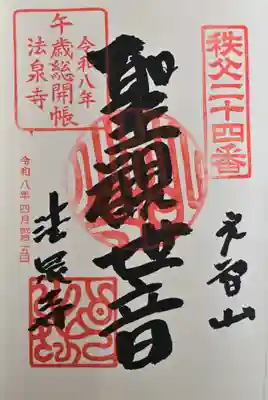 秩父二十四番
光智山
聖觀世音
令和八年
午歳総開帳
法泉寺
令和八年四月
法泉寺